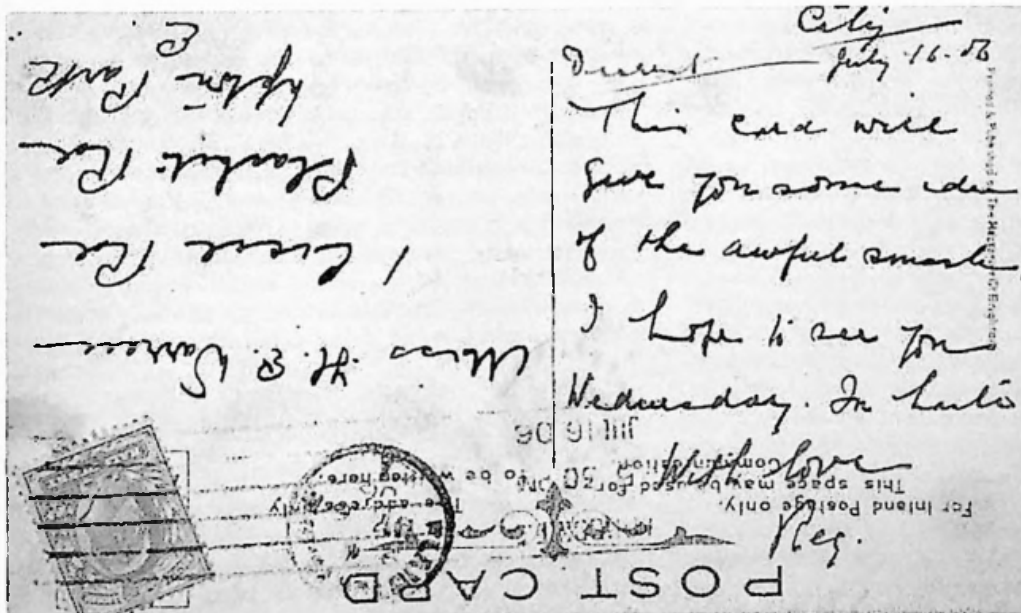 City
Dearest July 16. 06
This card will
give you some idea
of the awful smash
I hope to see you
Wednesday. In haste
With love
Reg.
POST CARD
For Inland Postage only.
This space may be used for
Communication.
The address only
to be written here.
JUL 16 06
Miss H. E. Warren
1 Road
Plashet Road
Upton Park
E.